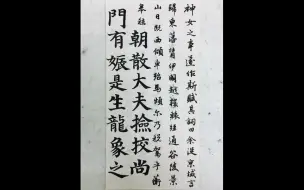 神女之事遂作斯賦其詞曰余從京域言
歸東藩背伊闕越轘轅經通谷陵景
山日既西傾車殆馬煩爾乃稅駕乎蘅
皋秣
朝散大夫撿挍尚
門有嫄是生龍象之